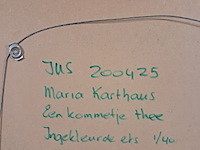 JUS 200425
Maria Karthaus
Een kommetje thee
Ingekleurde ets 1/40